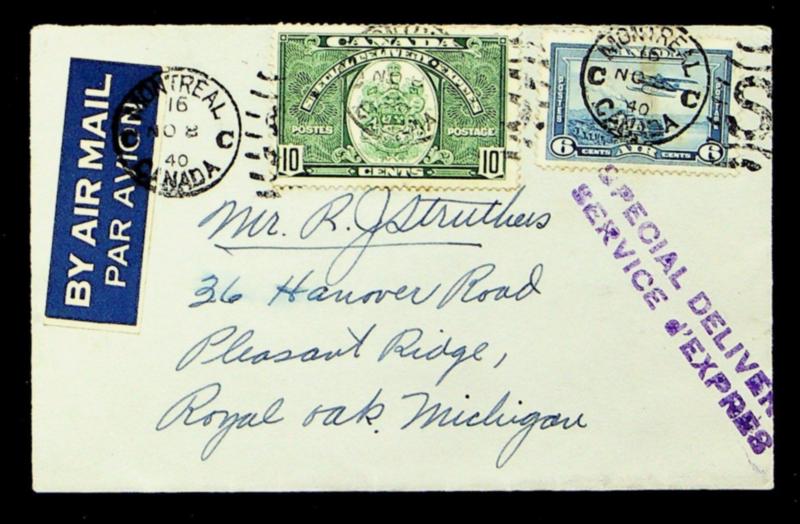 BY AIR MAIL
PAR AVION
MONTREAL
16
NO 8
40
CANADA
C
CANADA
SPECIAL DELIVERY EXPRES
POSTES POSTAGE
10 CENTS 10
MONTREAL
16
NO 8
C C
40
CANADA
POSTES POSTAGE
6 CENTS CENTS 6
Mr. R. J Struthers
36 Hanover Road
Pleasant Ridge,
Royal oak. Michigan
SPECIAL DELIVER
SERVICE d'EXPRES